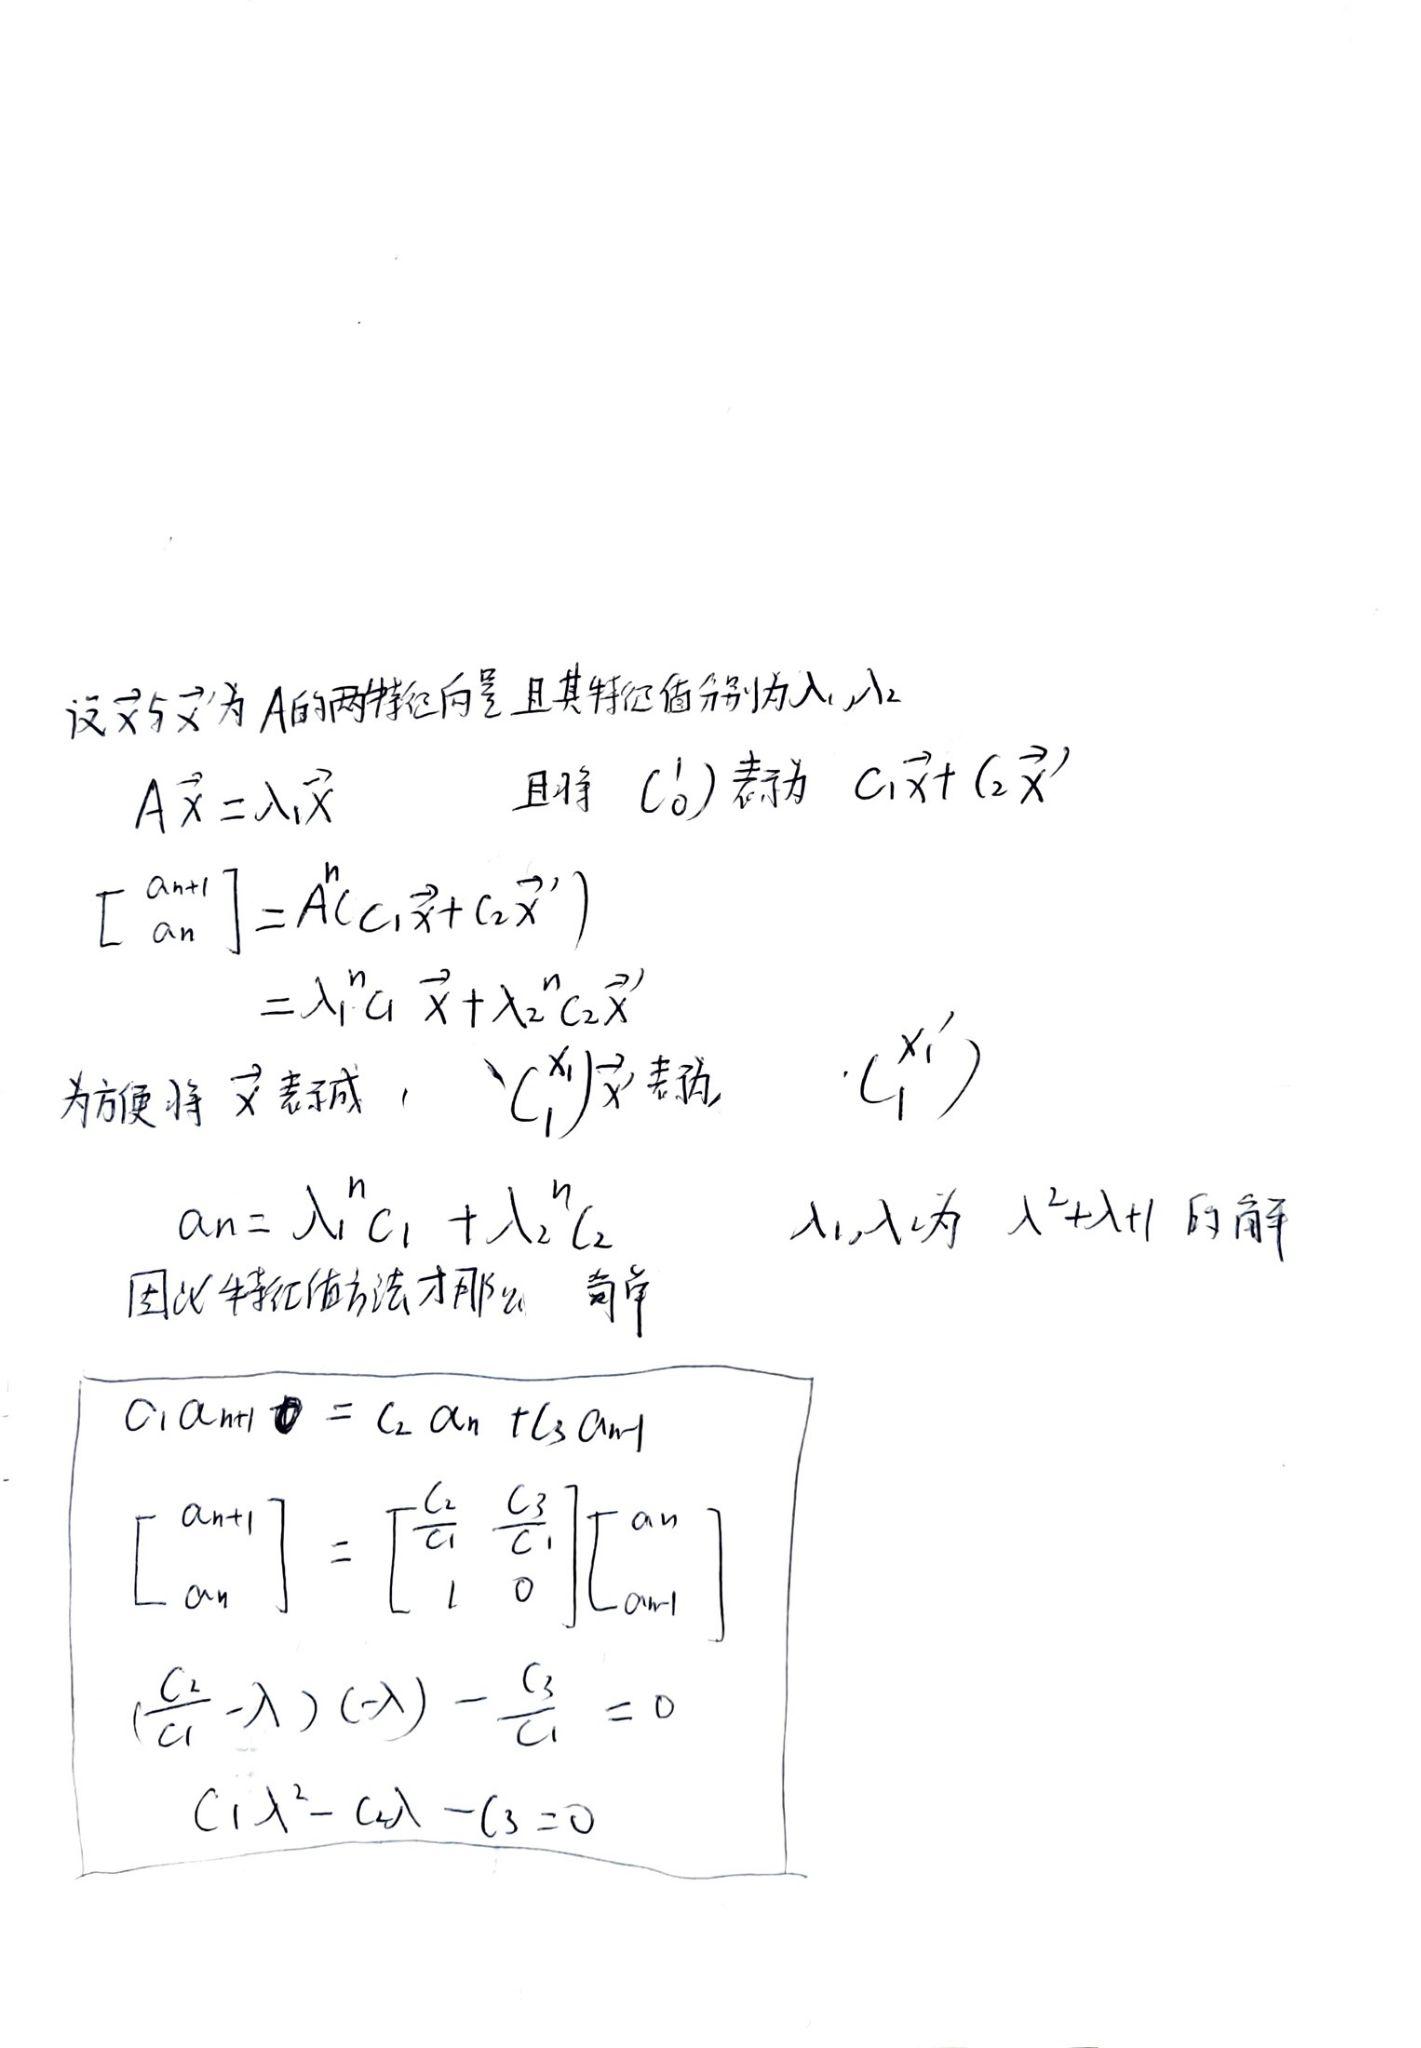 设x⃗与x⃗′为A的两特征向量且其特征值分别为λ₁,λ₂
Ax⃗=λ₁x⃗ 且将 (1 0) 表示为 c₁x⃗+c₂x⃗′
[aₙ₊₁ aₙ]=Aⁿ(c₁x⃗+c₂x⃗′)
=λ₁ⁿc₁x⃗+λ₂ⁿc₂x⃗′
为方便将 x⃗ 表示成, (x₁ 1) x⃗′表示为, (x₁′ 1)
aₙ=λ₁ⁿc₁+λ₂ⁿc₂ λ₁,λ₂为 λ²+λ+1 的解
因此特征值方法才那么 简单
c₁aₙ₊₁ = c₂aₙ+c₃aₙ₋₁
[aₙ₊₁ aₙ] = [c₂/c₁ c₃/c₁ 1 0][aₙ aₙ₋₁]
(c₂/c₁-λ)(-λ)-c₃/c₁=0
c₁λ²-c₂λ-c₃=0